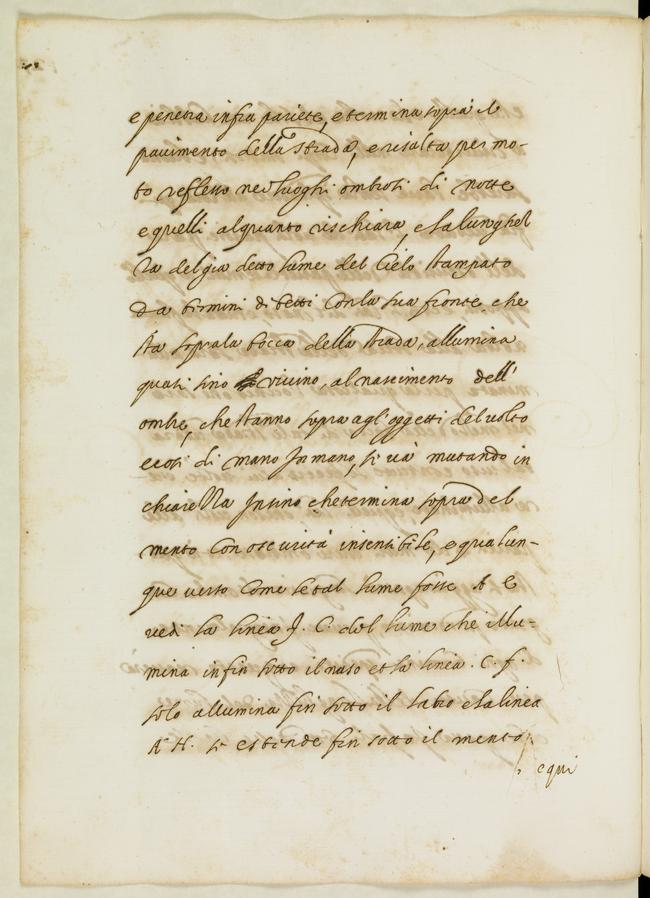 e penetra infra pariete, e termina sopra il
pavimento della strada, e risalta per mo-
to reflesso nei luoghi ombrosi di notte
e quelli alquanto rischiara, e la lunghez
za del gia detto lume del Cielo stampato
da termini di tetti con la sua fronte, che
sta sopra la bocca della strada, allumina
quasi sino vicino, al nascimento dell'
ombre, che stanno sopra agl'oggetti del volto
e cosi di mano In mano, si và mutando in
chiarezza Insino che termina sopra del
mento con oscurità insensibile, e qualun-
que verso Come se tal lume fosse A E
vedi la linea f. C. del lume che illu-
mina infin sotto il naso et la linea. C. f.
solo allumina fin sotto il labro e la linea
A H. si estende fin sotto il mento,
e qui